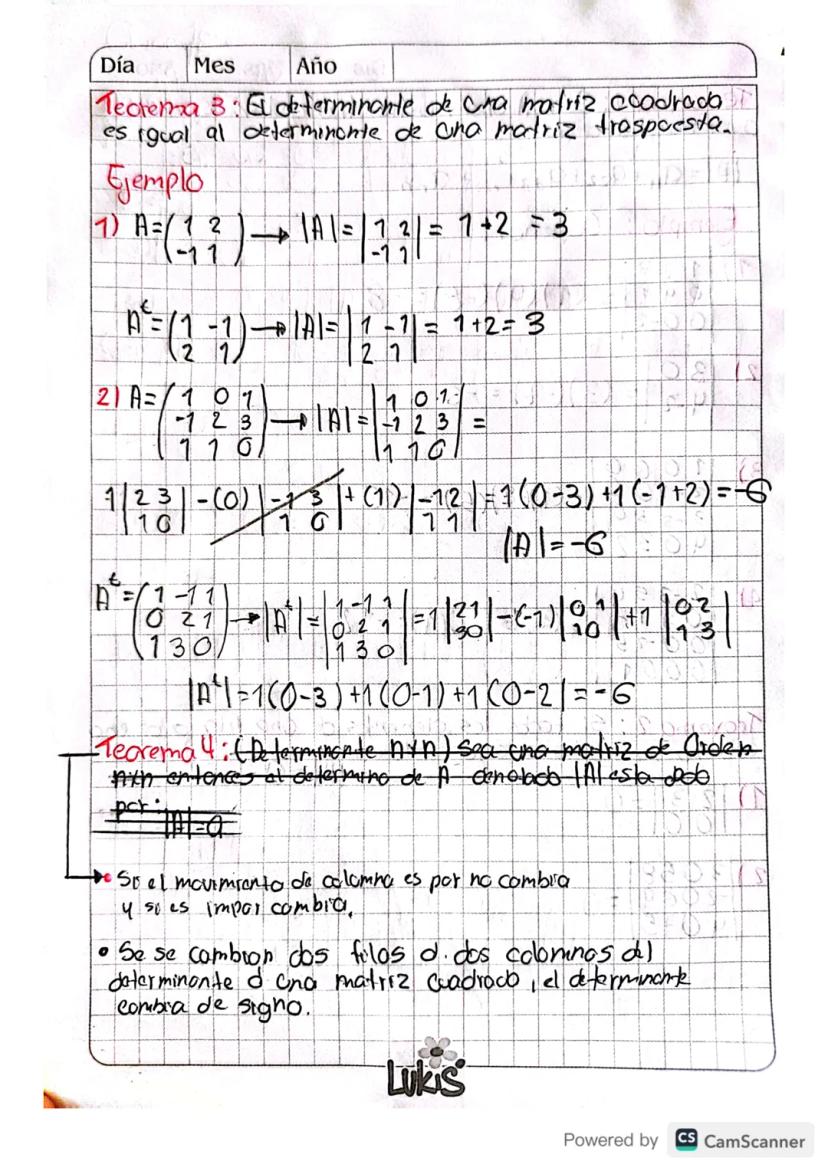 Día Mes Año
Teorema 3: El determinante de una matriz cuadrada
es igual al determinante de una matriz traspuesta.
Ejemplo
1) A=(1 2 → |A|=|1 2| = 1+2 = 3
-1 1) |-1 1|
Aᵗ=(1 -1 → |A|=|1 -1| = 1+2= 3
2 1) |2 1|
2) A=(1 0 1 → |A|=|1 0 1| =
-1 2 3 |-1 2 3|
1 1 0) |1 1 0|
1|2 3| -(0)|-1 3| + (1)·|-1 2| = 1(0-3)+1(-1+2)=-6
|1 0| |1 0| |1 1|
|A|=-6
Aᵗ=(1 -1 1 → |Aᵗ|=|1 -1 1| =1|2 1| -(-1)|0 1| +1|0 2|
0 2 1 |0 2 1| |3 0| |1 0| |1 3|
1 3 0) |1 3 0|
|Aᵗ|=1(0-3)+1(0-1)+1(0-2)=-6
Teorema 4: (Determinante nxn) Sea una matriz de Orden
nxn entonces el determino de A denolado |A| esta dado
por:
|A|=a
• Si el movimiento de columna es par no cambia
y si es impar cambia.
• Se se cambian dos filas d. dos columnas dl
determinante d una matriz cuadrada, el determinante
cambia de signo.
LUKIS
Powered by CS CamScanner